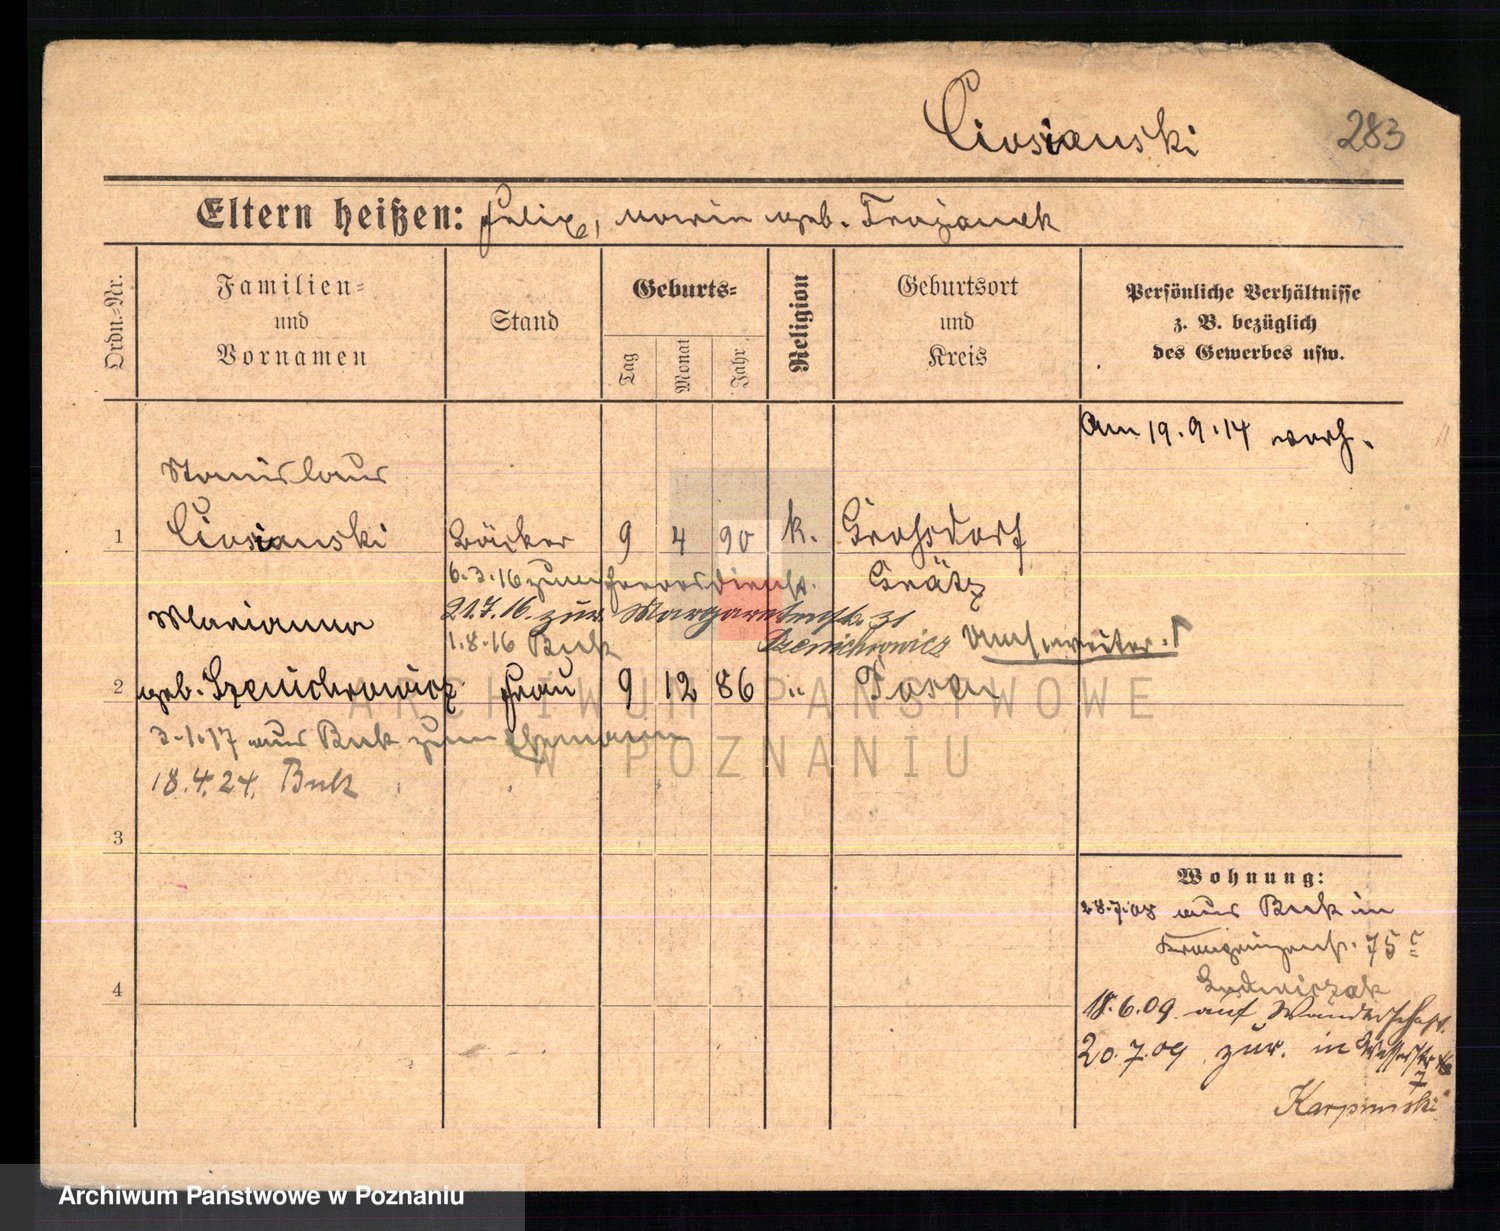 Ciosianski 283
Eltern heißen: Felix, Marie geb. Trojanek
Ordn.-Nr.
Familien-
und
Vornamen
Stand
Geburts-
Tag
Monat
Jahr
Religion
Geburtsort
und
Kreis
Persönliche Verhältnisse
z. B. bezüglich
des Gewerbes usw.
Am 19.9.14 verh.
Stanislaus
1 Ciosianski Bäcker 9 4 90 k. Grohsdorf
6.3.16 zum Heeresdienst. Grätz
21.7.16 zur. Margaretenstr. 31
Marianna
1.8.16 Buk Szenichrowicz
2 geb. Szenichrowicz Frau 9 12 86 " Posen
3.1.17 aus Buk zum Ehemann
18.4.24. Buk
3
4
Wohnung:
28.7.08 aus Buk in
75c
Ludwiczak
18.6.09 auf Wanderschaft.
20.7.09 zur. in Wasserstr.
7
Karpinski
ARCHIWUM PAŃSTWOWE
W POZNANIU
Archiwum Państwowe w Poznaniu